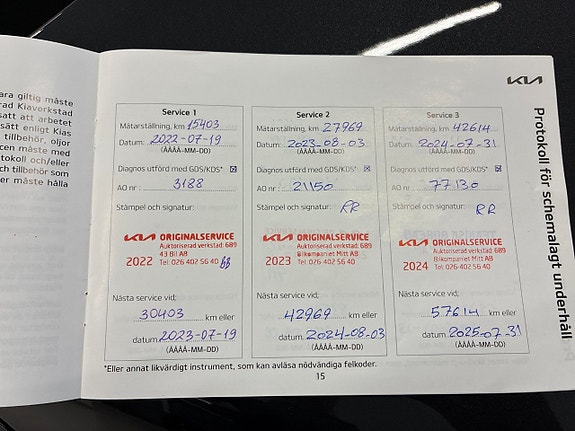 ara giltig måste
rad Kiaverkstad
satt att arbetet
sätt enligt Kias
tillbehör, oljor
cen måste med
tokoll och/eller
ch tillbehör som
er måste hålla
KIA
Protokoll för schemalagt underhåll
Service 1
Mätarställning, km 15403
Datum: 2022-07-19
(ÅÅÅÅ-MM-DD)
Diagnos utförd med GDS/KDS*
AO nr: 3188
Stämpel och signatur:
KIA ORIGINALSERVICE
Auktoriserad verkstad: 689
43 Bil AB
2022 Tel 026 402 56 40
Nästa service vid;
30403 km eller
datum 2023-07-19
(ÅÅÅÅ-MM-DD)
Service 2
Mätarställning, km 27969
Datum: 2023-08-03
(ÅÅÅÅ-MM-DD)
Diagnos utförd med GDS/KDS*
AO nr: 21150
Stämpel och signatur:
RR
KIA ORIGINALSERVICE
Auktoriserad verkstad: 689
Bilkompaniet Mitt AB
2023 Tel 026 402 56 40
Nästa service vid;
42969 km eller
datum 2024-08-03
(ÅÅÅÅ-MM-DD)
Service 3
Mätarställning, km 42614
Datum: 2024-07-31
(ÅÅÅÅ-MM-DD)
Diagnos utförd med GDS/KDS*
AO nr: 77130
Stämpel och signatur:
RR
KIA ORIGINALSERVICE
Auktoriserad verkstad: 689
Bilkompaniet Mitt AB
2024 Tel 026 402 56 40
Nästa service vid;
57614 km eller
datum 2025-07-31
(ÅÅÅÅ-MM-DD)
*Eller annat likvärdigt instrument, som kan avläsa nödvändiga felkoder.
15